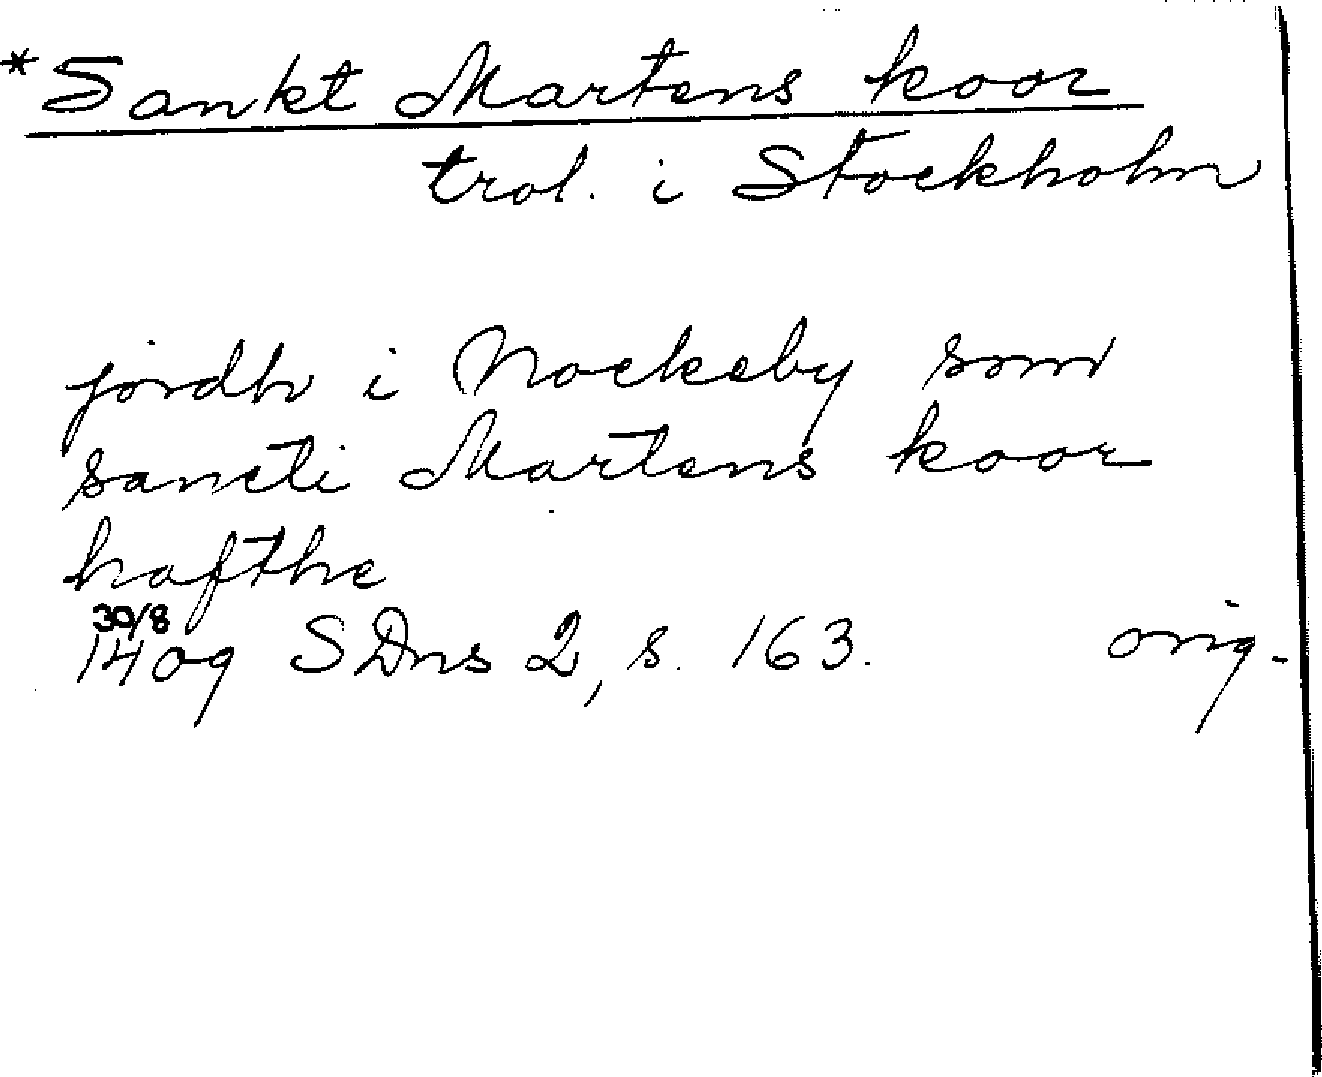 *Sankt Martens koor
trol. i Stockholm
jordh i Nockeby som
sancti Martens koor
hafthe
30/8
1409 SDns 2, s. 163. orig.